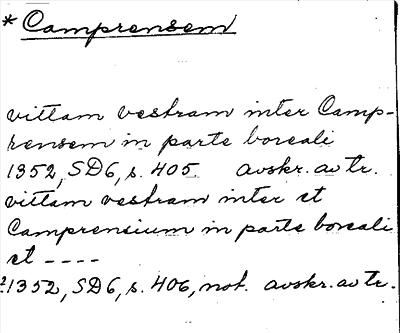 *Camprensem
vittam vestram inter Camp-
rensem in parte boreali
1352, SD6, s. 405. avskr. av tr.
vittam vestram inter et
Camprensium in parte boreali
et ----
1352, SD6, s. 406, not. avskr. av tr.